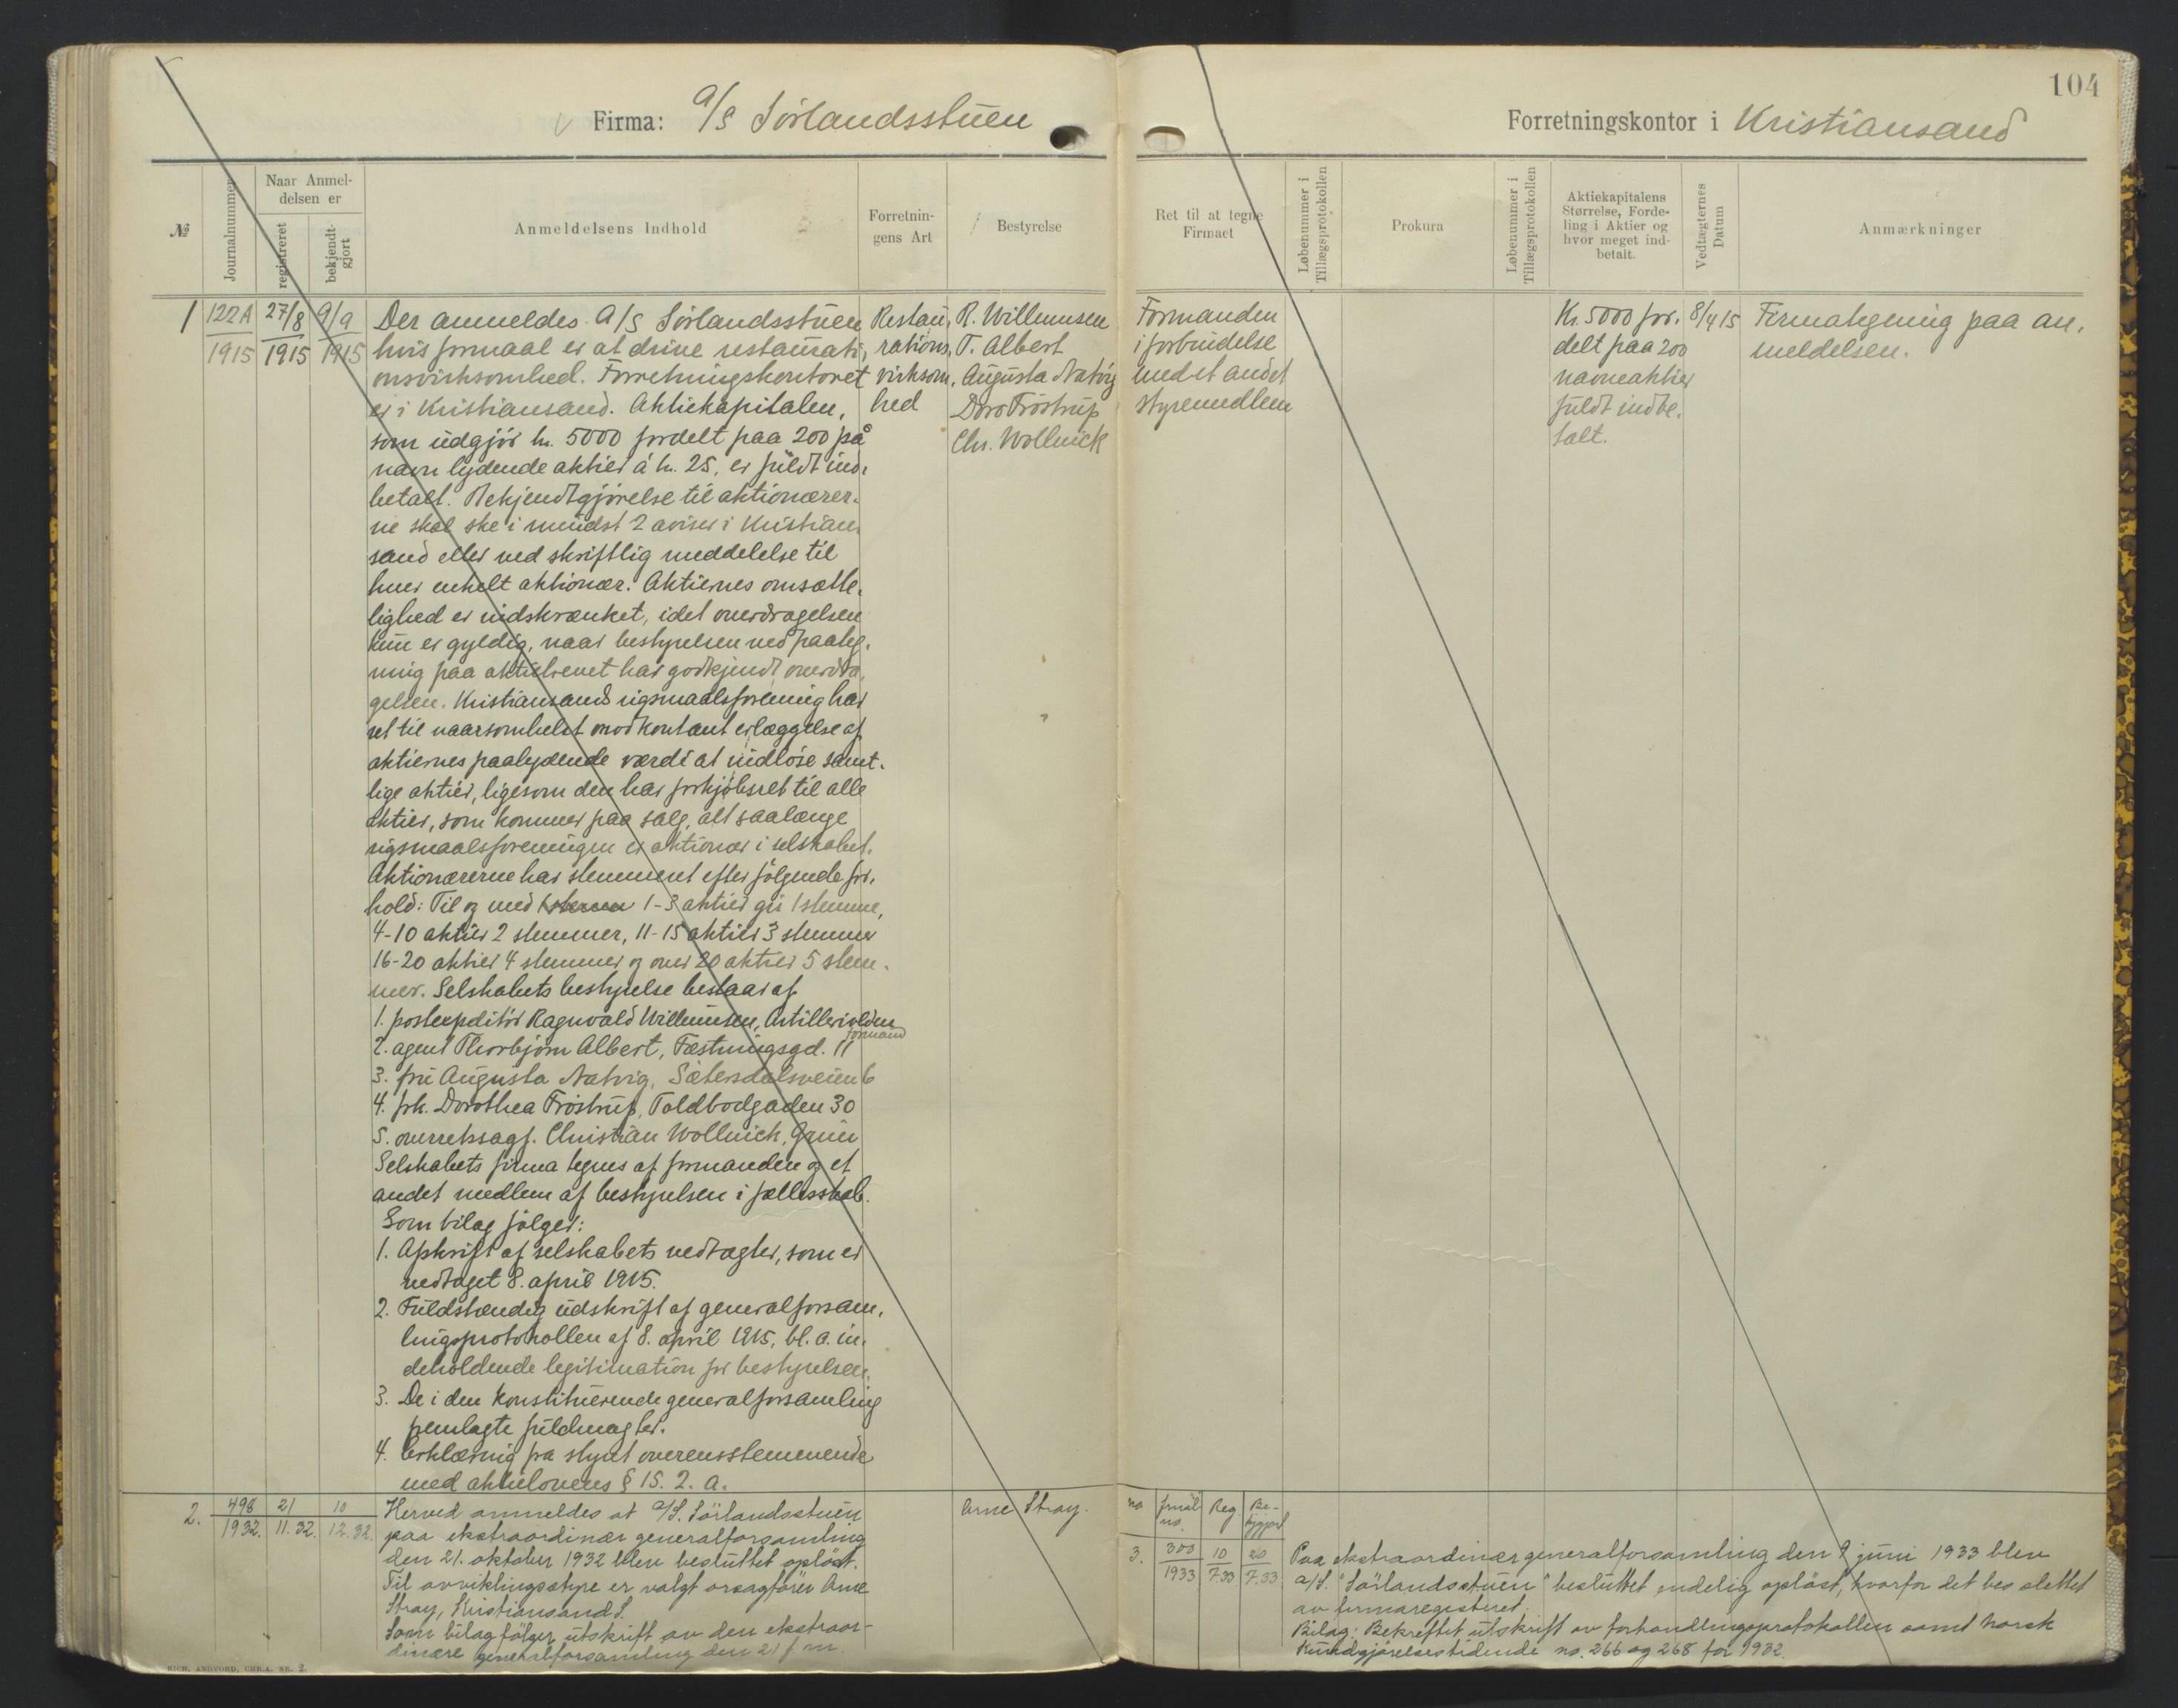 104
Firma: A/S Sørlandsstuen
Forretningskontor i Kristiansand
№
Journalnummer
Naar Anmel-
delsen er
registreret
bekjendt-
gjort
Anmeldelsens Indhold
Forretnin-
gens Art
Bestyrelse
Ret til at tegne
Firmaet
Løbenummer i
Tillægsprotokollen
Prokura
Løbenummer i
Tillægsprotokollen
Aktiekapitalens
Størrelse, Forde-
ling i Aktier og
hvor meget ind-
betalt.
Vedtægternes
Datum
Anmærkninger
1
122A
1915
27/8
1915
9/9
1915
Der anmeldes A/S Sørlandsstuen
hvis formaal er at drive restaurati,
onsvirksomhed. Forretningskontoret
er i Kristiansand. Aktiekapitalen,
som udgjør kr. 5000 fordelt paa 200 på
navn lydende aktier á kr. 25, er fuldt ind,
betalt. Bekjendtgjørelse til aktionærer,
ne skal ske i mindst 2 aviser i Kristian,
sand eller ved skriftlig meddelelse til
hver enkelt aktionær. Aktiernes omsætte,
lighed er indskrænket, idet overdragelsen
kun er gyldig, naar bestyrelsen ved paateg,
ning paa aktiebrevet har godkjendt overdra,
gelsen. Kristiansands rigsmaalsforening har
ret til naarsomhelst mod kontant erlæggelse af
aktiernes paalydende værdi at indløse samt,
lige aktier, ligesom den har forkjøbsret til alle
aktier, som kommer paa salg, alt saalænge
rigsmaalsforeningen er aktionær i selskabet.
Aktionærerne har stemmeret efter følgende for,
hold: Til og med 1-3 aktier gir 1 stemme,
4-10 aktier 2 stemmer, 11-15 aktier 3 stemmer
16-20 aktier 4 stemmer og over 20 aktier 5 stem,
mer. Selskabets bestyrelse bestaar af
1. postexpeditør Ragnvald Willumsen, Artillerivolden
formand
2. agent Thorbjørn Albert, Fæstningsgd. 11
3. fru Augusta Natvig, Sætersdalsveien 6
4. frk. Dorothea Frøstrup, Toldbodgaden 30
5. overretssagf. Christian Wollnick, Grim
Selskabets firma tegnes af formanden og et
andet medlem af bestyrelsen i fællesskab.
Som bilag følger:
1. Afskrift af selskabets vedtægter, som er
vedtaget 8. april 1915.
2. Fuldstændig udskrift af generalforsam,
lingsprotokollen af 8. april 1915, bl. a. in,
deholdende legitimation for bestyrelsen.
3. De i den konstituerende generalforsamling
fremlagte fuldmagter.
4. Erklæring fra styret overensstemmende
med aktielovens § 15. 2. a.
Restau,
rations,
virksom,
hed
R. Willumsen
T. Albert
Augusta Natvig
Doro Frøstrup
Chr. Wollnick
Formanden
i forbindelse
med et andet
styremedlem
Kr. 5000 for,
delt paa 200
navneaktier
fuldt indbe,
talt.
8/4 15
Firmategning paa an,
meldelsen.
2.
498
1932.
21
11.32.
10
12.32.
Herved anmeldes at A/S. Sörlandsstuen
paa ekstraordinær generalforsamling
den 21. oktober 1932 blev besluttet opløst.
Til avviklingsstyre er valgt orsagfører Arne
Stray, Kristiansand S.
Som bilag følger utskrift av den ekstraor-
dinære generalforsamling den 21 f.m.
Arne Stray.
no
Jrnal
no.
Reg.
Be-
kjgjort
3.
300
1933
10
7.33
20
7.33.
Paa ekstraordinær generalforsamling den 9 juni 1933 blev
A/S. "Sörlandsstuen" besluttet endelig opløst, hvorfor det bes slettet
av firmaregisteret.
Bilag: Bekreftet utskrift av forhandlingsprotokollen samt Norsk
Kundgjørelsestidende no. 266 og 268 for 1932.
RICH. ANDVORD, CHR.A. NR. 2.